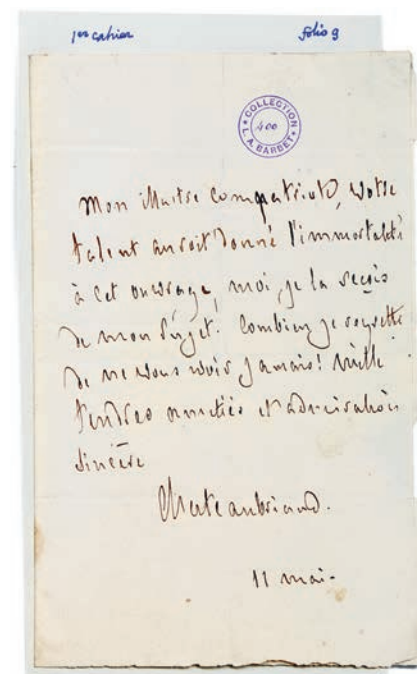 1er cahier folio 9
COLLECTION L. A. BARBET
400
Mon illustre compatriote, votre
talent auroit donné l'immortalité
à cet ouvrage, moi, je la reçois
de mon sujet. Combien je regrette
de ne vous voir jamais! mille
tendres amitiés et admiration
sincère
Chateaubriand.
11 mai-